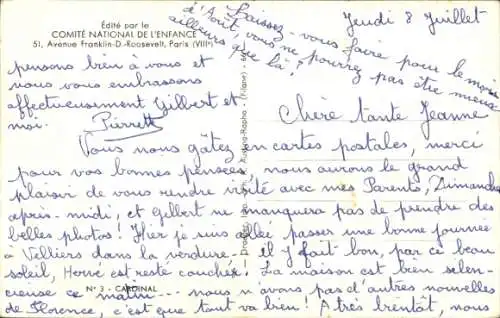 Édité par le
COMITÉ NATIONAL DE L'ENFANCE
51, Avenue Franklin-D.-Roosevelt, Paris (VIIIe)
Jeudi 8 Juillet
Chère tante Jeanne
Vous nous gâtez en cartes postales, merci
pour vos bonnes pensées, nous aurons le grand
plaisir de vous rendre visite avec mes Parents, Dimanche
après-midi, et Gilbert ne manquera pas de prendre des
belles photos! Hier je suis allée passer une bonne journée
à Velliers dans la verdure, il y fait bon, par ce beau
soleil, Hervé est resté couché. La maison est bien silen-
cieuse ce matin... nous n'avons pas d'autres nouvelles
de Florence, c'est que tout va bien! A très bientôt, nous
pensons bien à vous et
nous vous embrassons
affectueusement Gilbert et
moi. Pierrett
Laissez-vous faire pour le mois
d'Août, vous ne pourrez pas être mieux
ailleurs que là!
N° 3 - CARDINAL